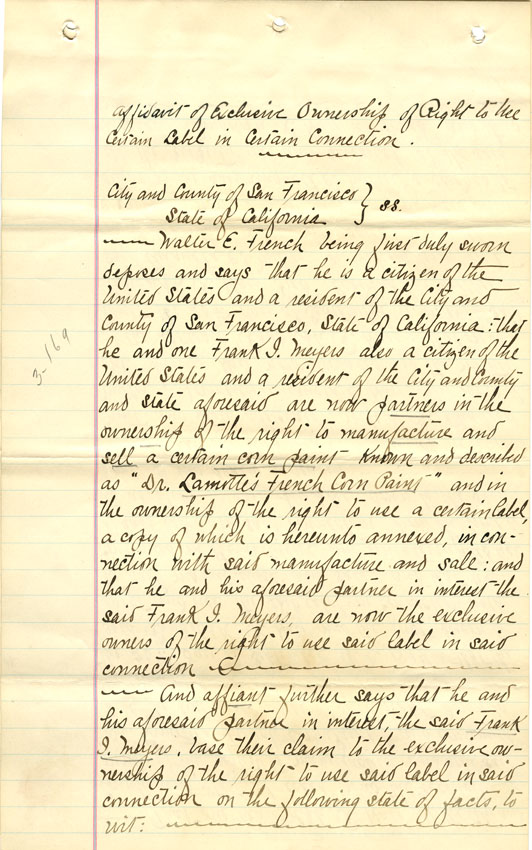 Affidavit of Exclusive Ownership of Right to Use
Certain Label in Certain Connection.
City and County of San Francisco
State of California } ss.
Walter E. French being first duly sworn
deposes and says that he is a citizen of the
United States and a resident of the City and
County of San Francisco, State of California: that
he and one Frank I. Meyers also a citizen of the
United States and a resident of the City and County
and State aforesaid are now partners in the
ownership of the right to manufacture and
sell a certain corn paint known and described
as "Dr. Lamotte's French Corn Paint" and in
the ownership of the right to use a certain label
a copy of which is hereunto annexed, in con-
nection with said manufacture and sale: and
that he and his aforesaid partner in interest the
said Frank I. Meyers, are now the exclusive
owners of the right to use said label in said
connection
And affiant further says that he and
his aforesaid partner in interest, the said Frank
I. Meyers, base their claim to the exclusive ow-
nership of the right to use said label in said
connection on the following state of facts, to
wit:
3-169